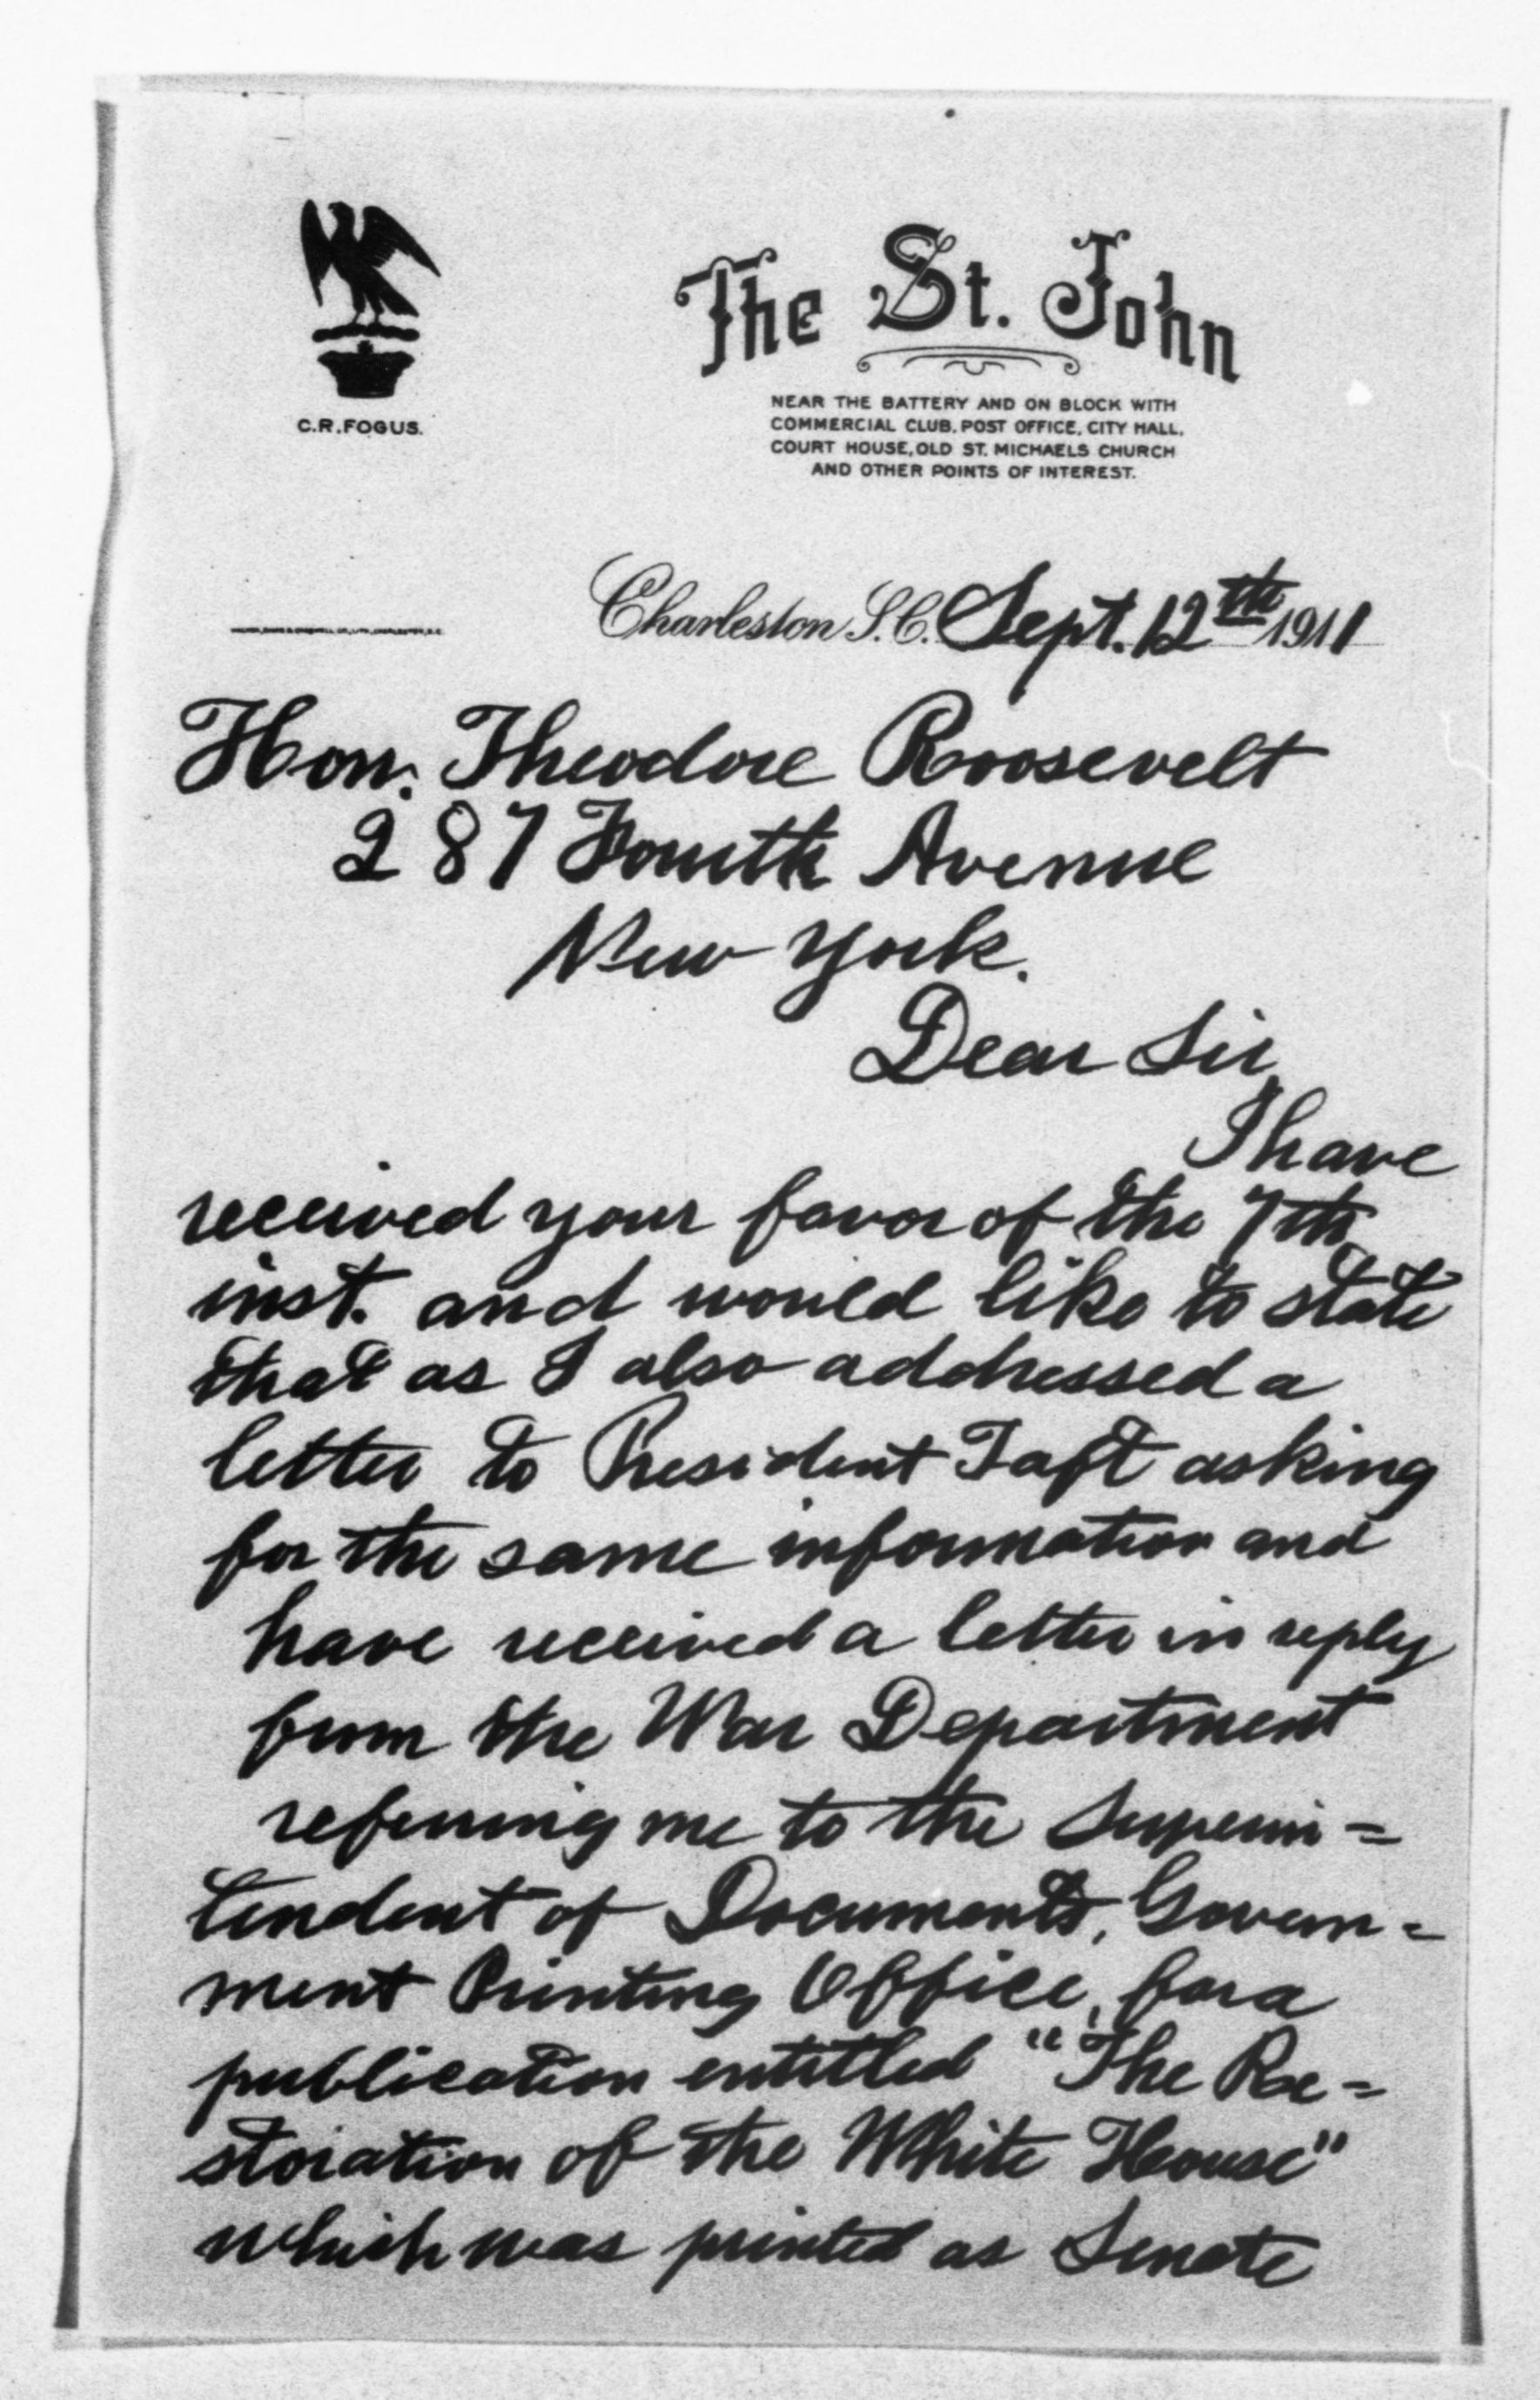 The St. John
NEAR THE BATTERY AND ON BLOCK WITH
COMMERCIAL CLUB, POST OFFICE, CITY HALL,
COURT HOUSE, OLD ST. MICHAELS CHURCH
AND OTHER POINTS OF INTEREST.
C.R. FOGUS.
Charleston S.C. Sept. 12th 1911
Hon. Theodore Roosevelt
287 Fourth Avenue
New York.
Dear Sir,
I have
received your favor of the 7th
inst. and would like to state
that as I also addressed a
letter to President Taft asking
for the same information and
have received a letter in reply
from the War Department
referring me to the Superin=
tendent of Documents, Govern=
ment Printing Office, for a
publication entitled "The Re=
storation of the White House"
which was printed as Senate